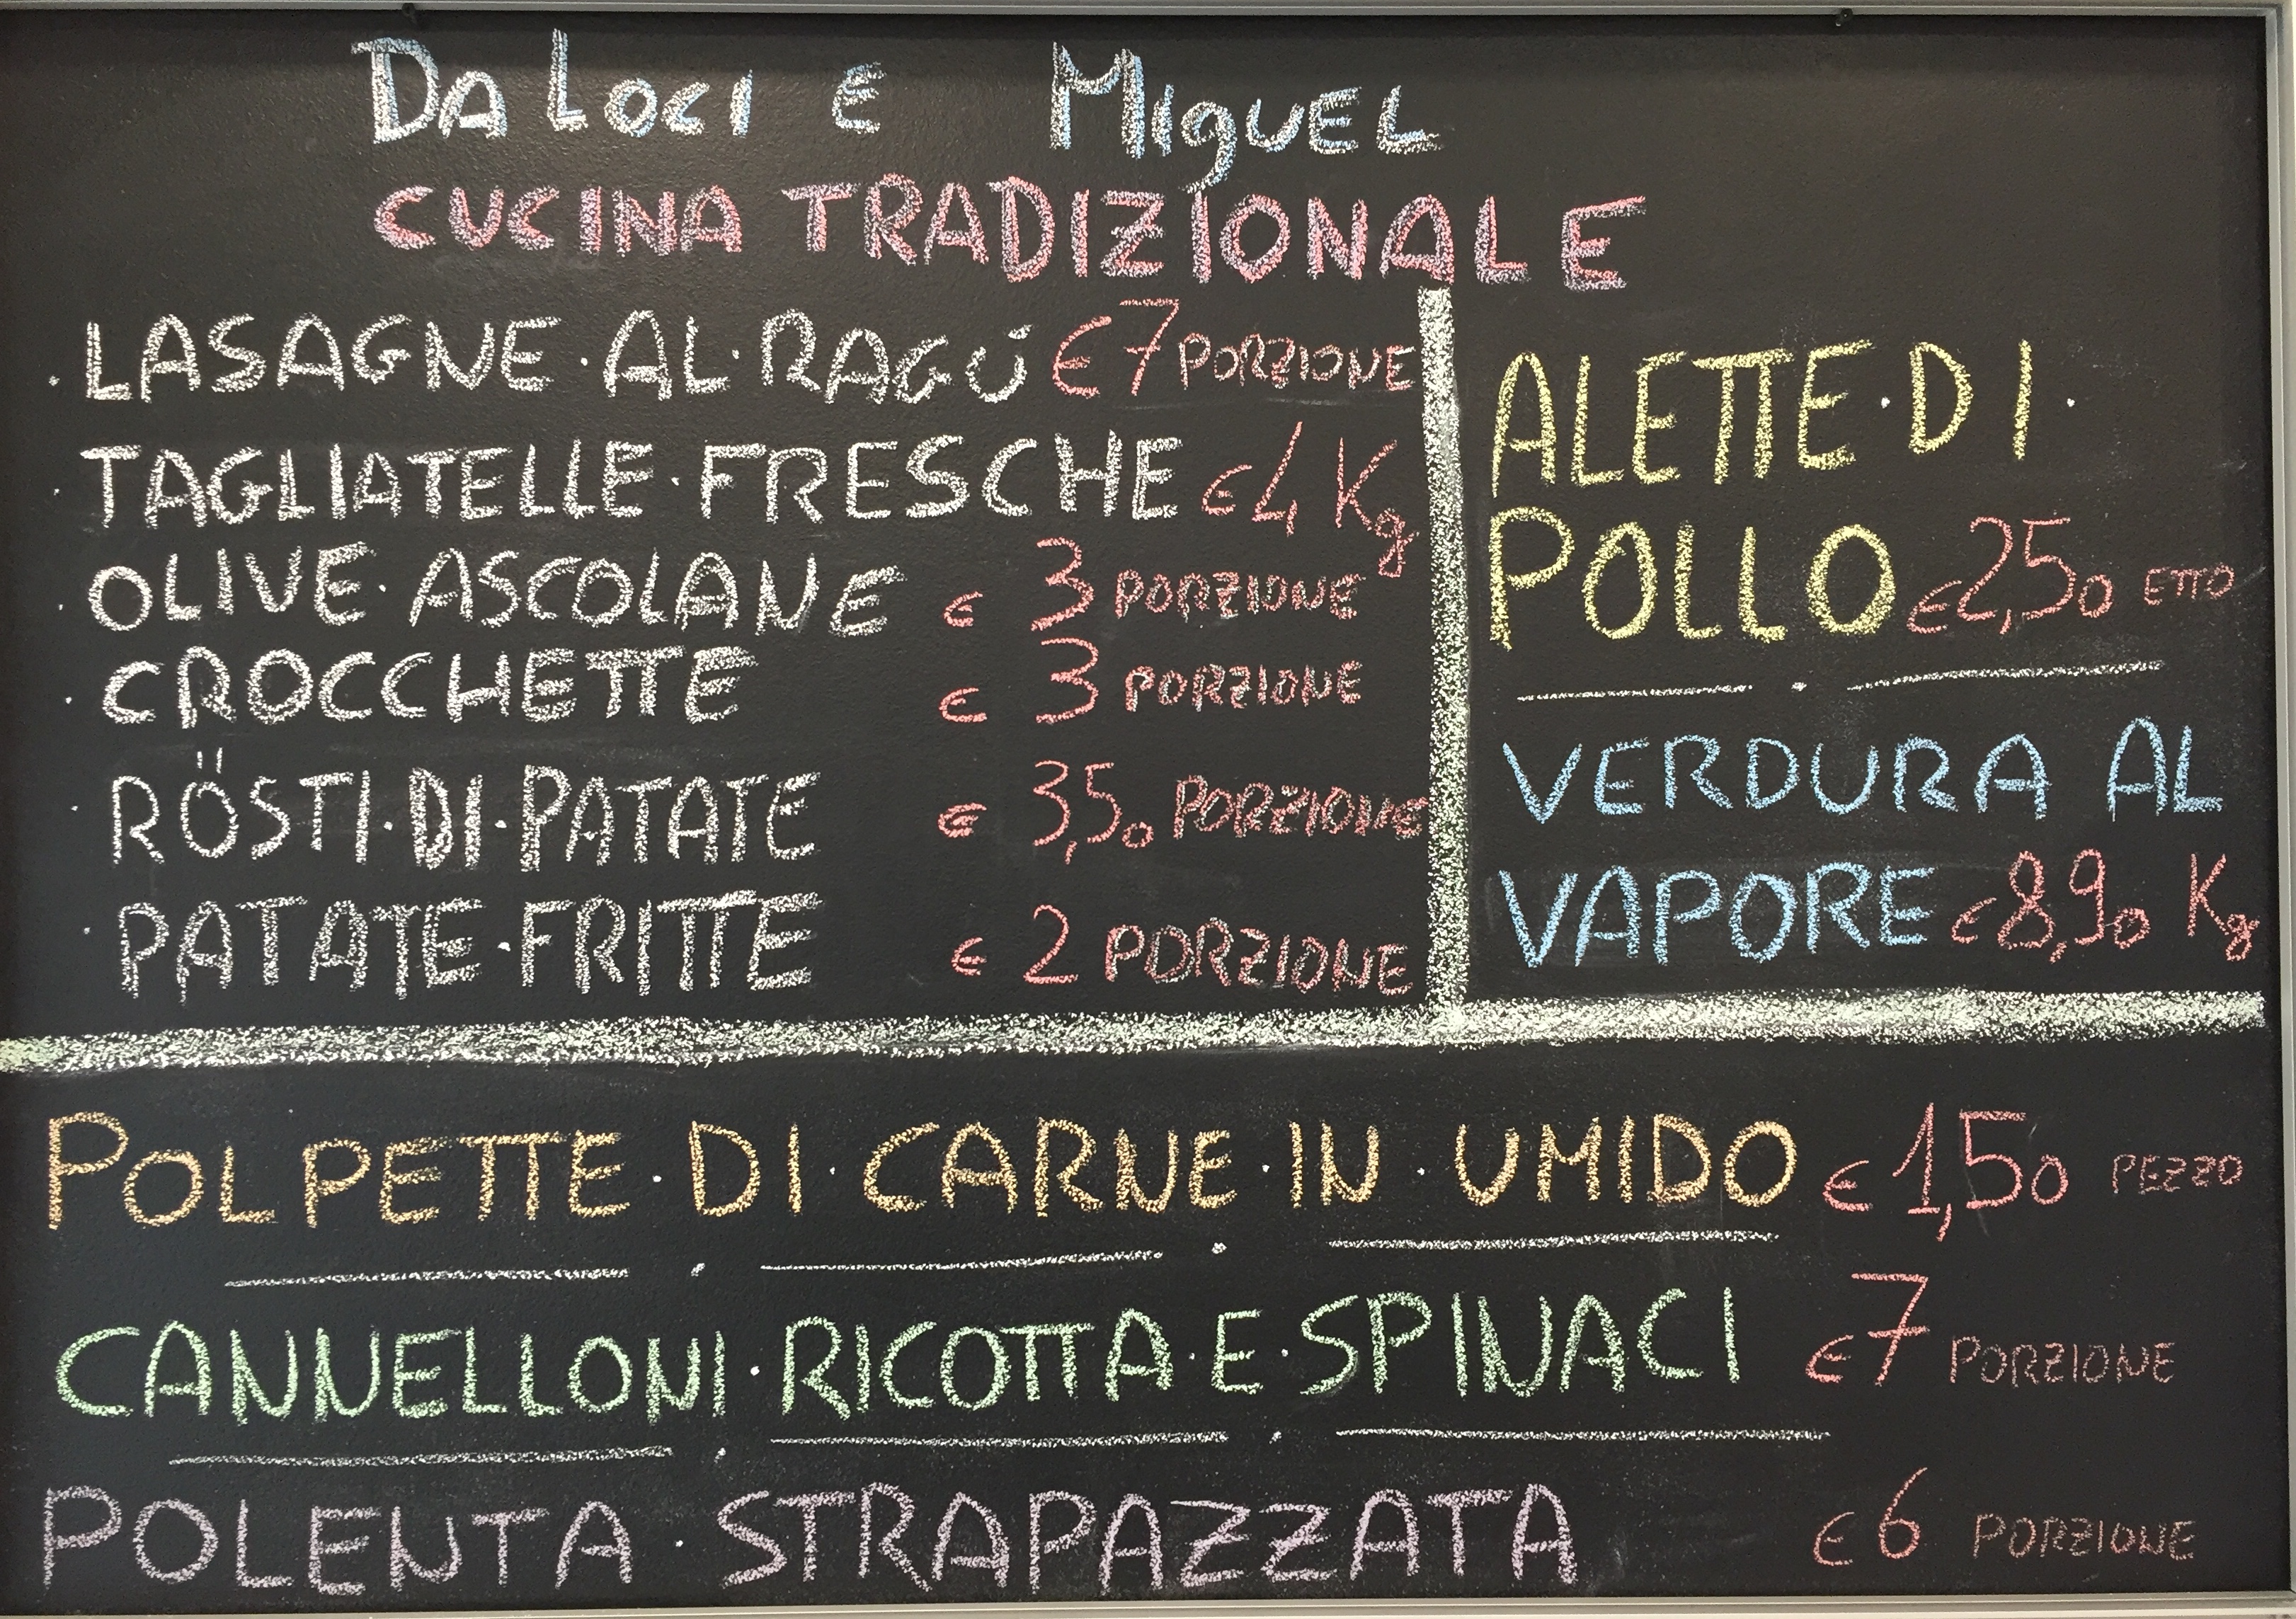 DA LOCI E MIGUEL
CUCINA TRADIZIONALE
· LASAGNE · AL · RAGÚ €7 PORZIONE
· TAGLIATELLE · FRESCHE €4 Kg
· OLIVE · ASCOLANE € 3 PORZIONE
· CROCCHETTE € 3 PORZIONE
· RÖSTI · DI · PATATE € 3,50 PORZIONE
· PATATE · FRITTE € 2 PORZIONE
ALETTE · DI ·
POLLO €2,50 ETTO
VERDURA AL
VAPORE €8,90 Kg
POLPETTE · DI · CARNE · IN · UMIDO €1,50 PEZZO
CANNELLONI · RICOTTA · E · SPINACI €7 PORZIONE
POLENTA · STRAPAZZATA €6 PORZIONE